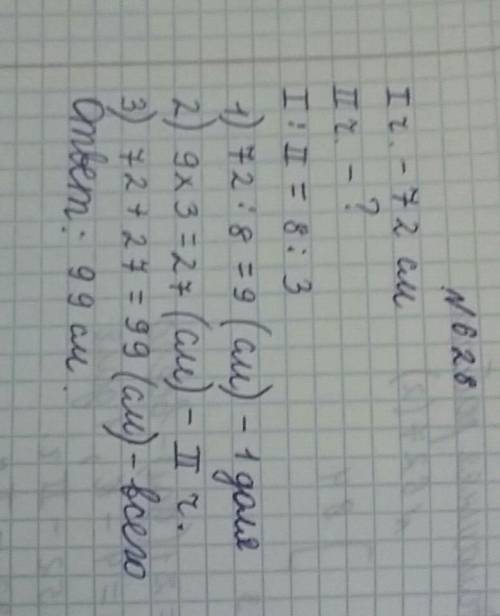 N 628
I ч. - 72 см
II ч. - ?
I : II = 8 : 3
1) 72 : 8 = 9 (см) - 1 доля
2) 9 x 3 = 27 (см) - II ч.
3) 72 + 27 = 99 (см) - всего
Ответ: 99 см.